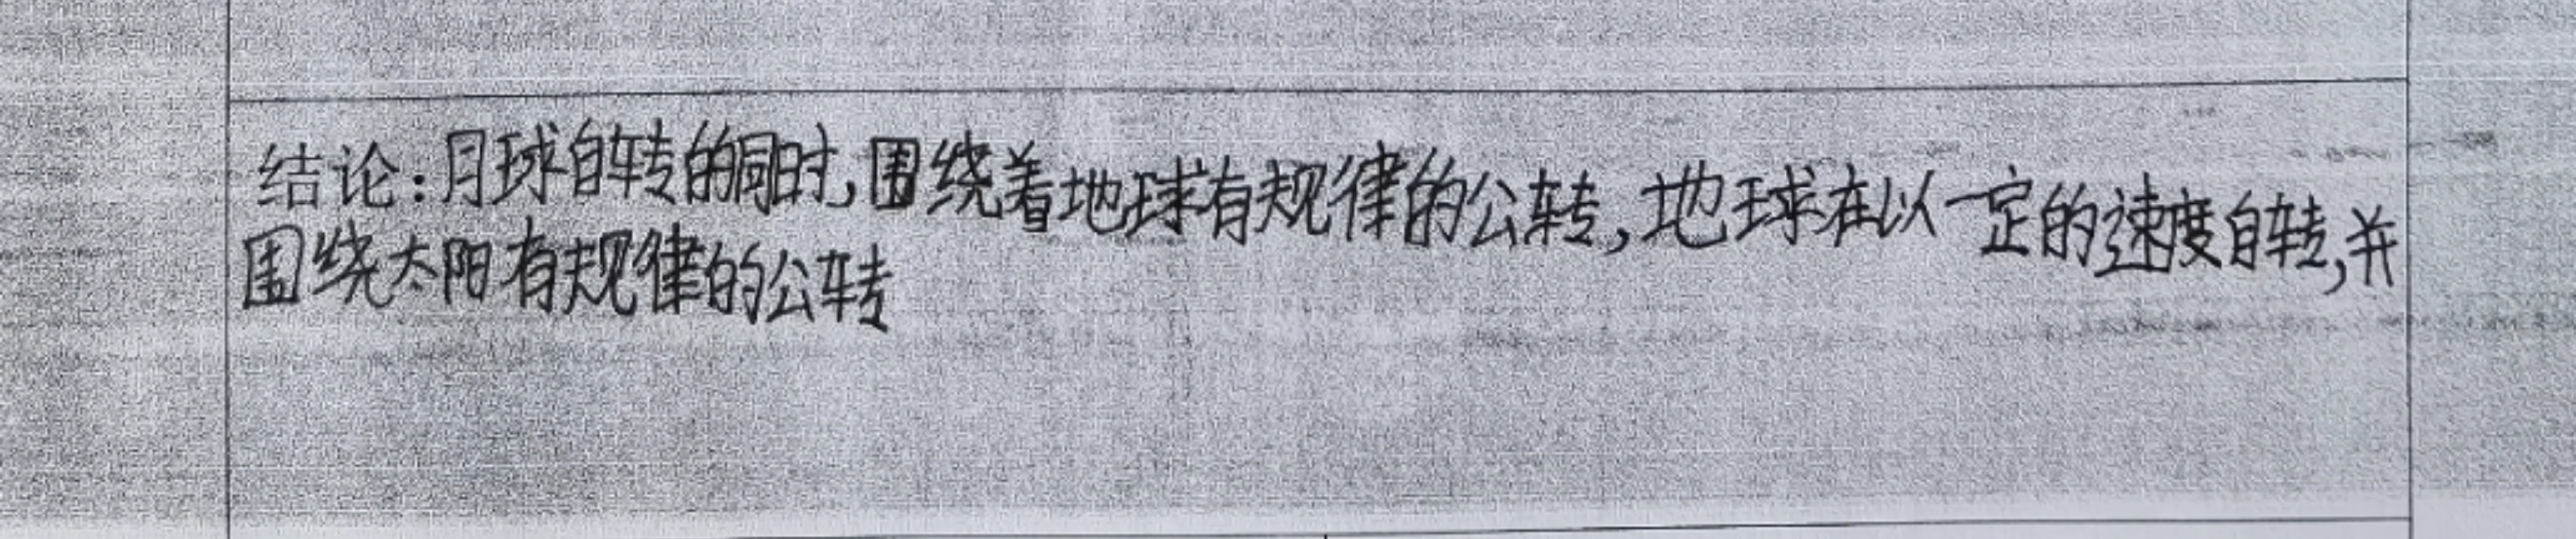 结论:月球自转的同时,围绕着地球有规律的公转,地球在以一定的速度自转,并
围绕太阳有规律的公转